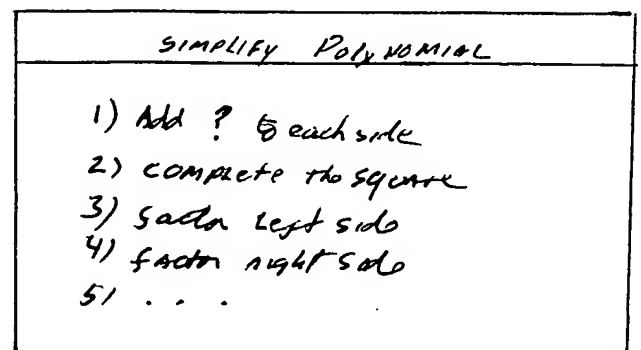 SIMPLIFY POLYNOMIAL
1) Add ? to each side
2) COMPLETE the square
3) factor Left side
4) factor right side
5) . . .